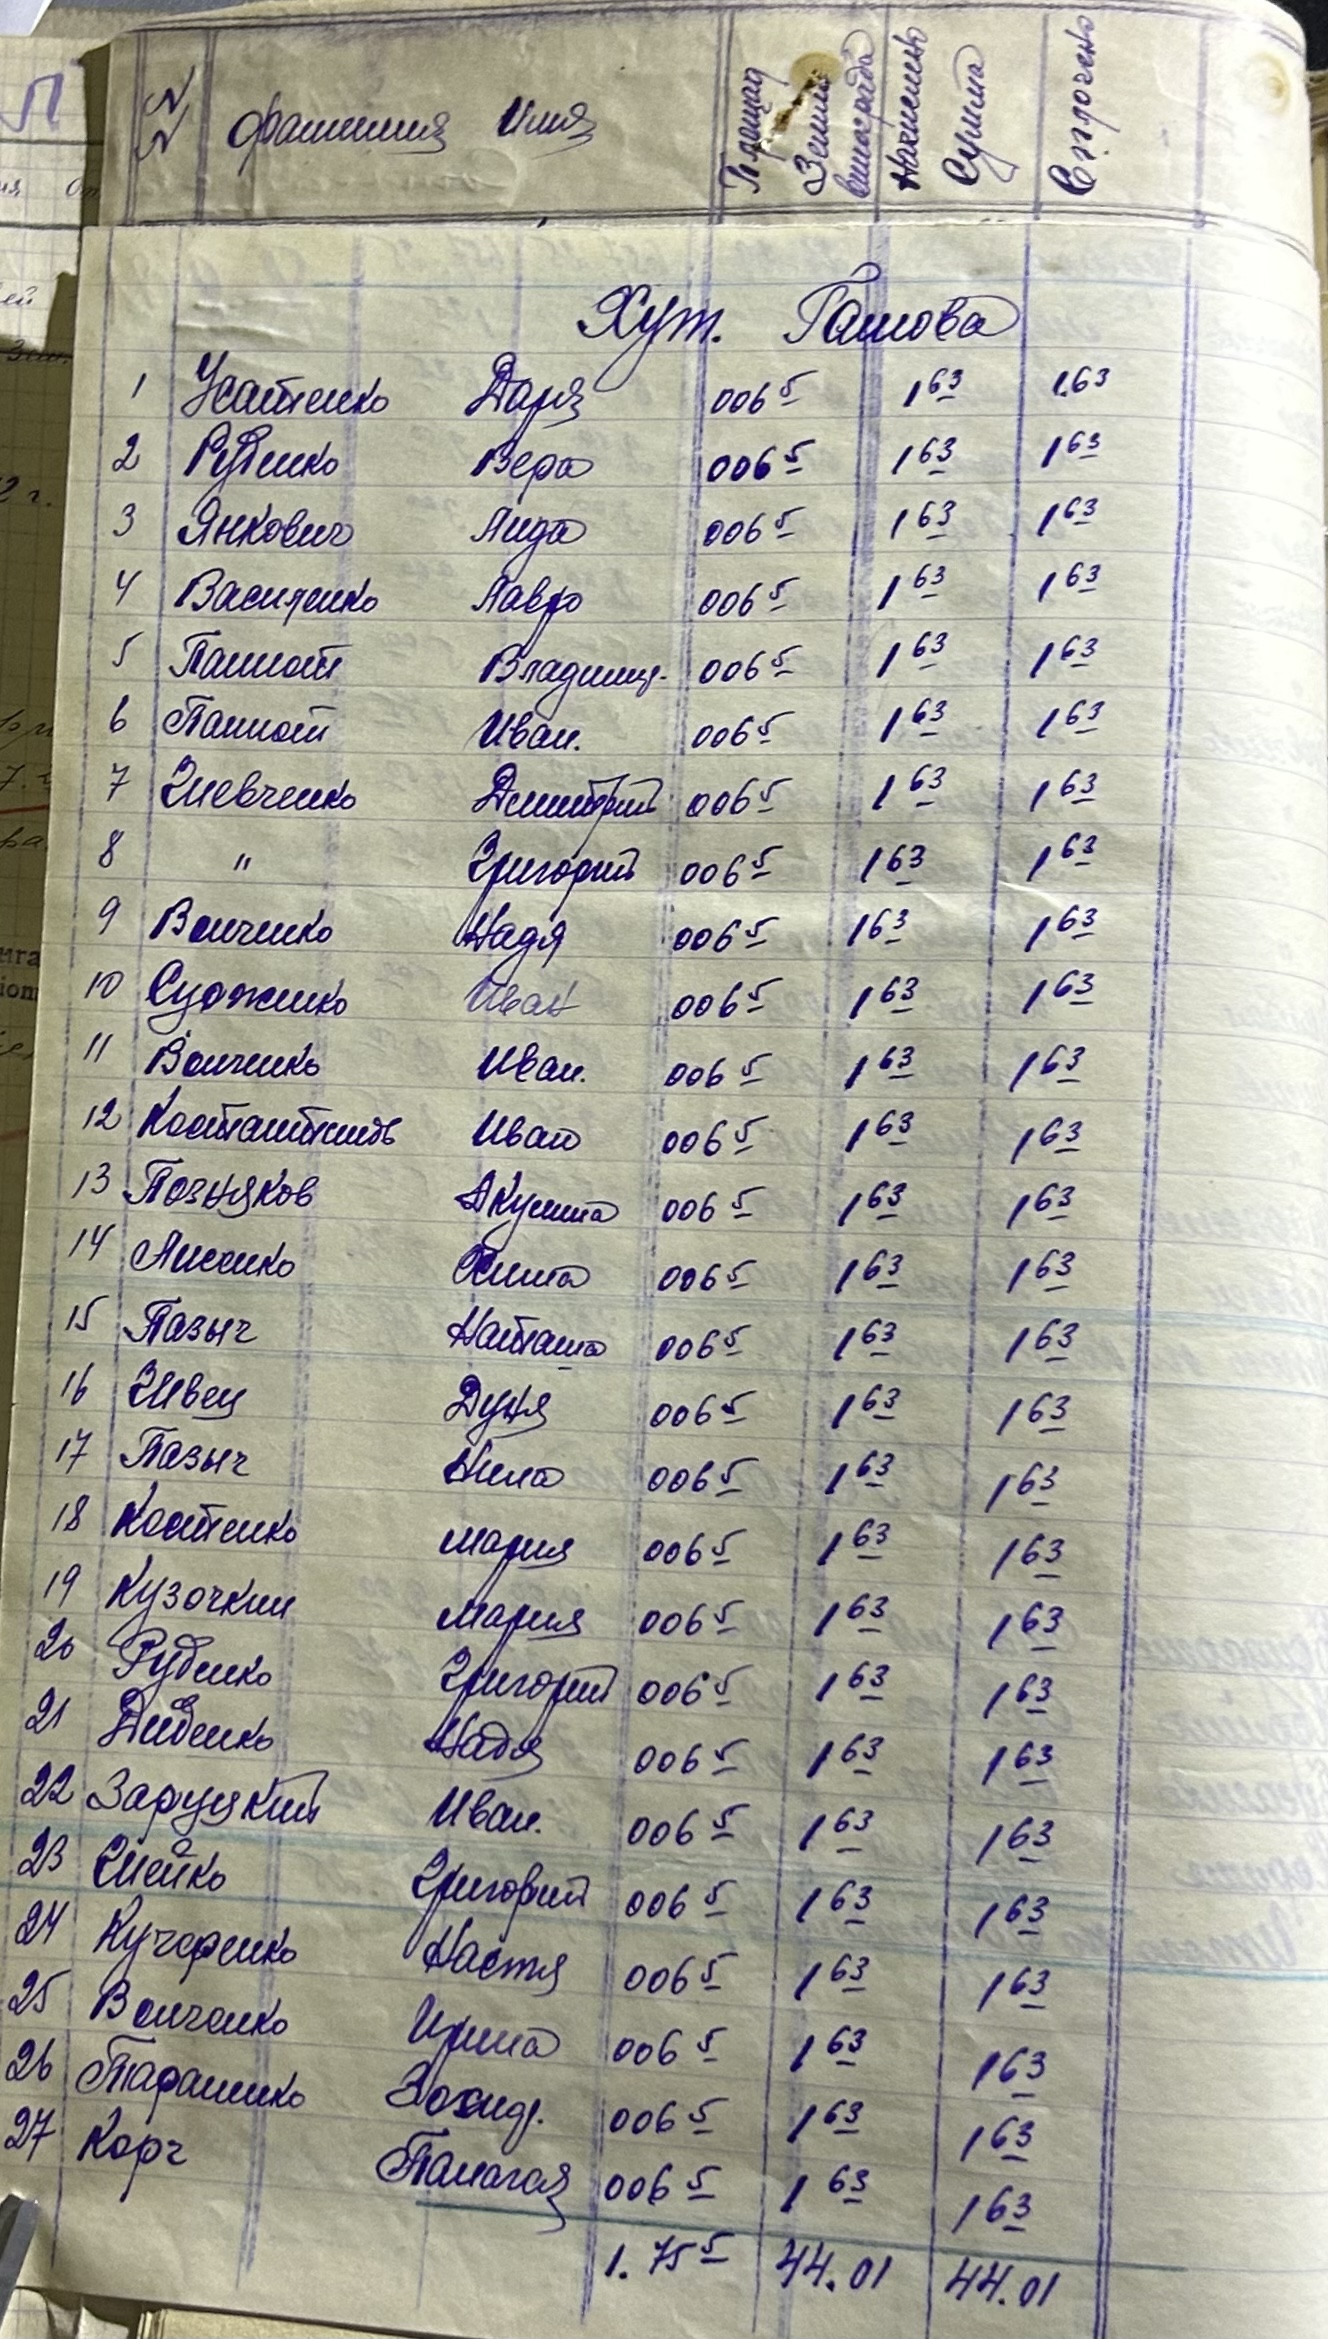 №№ Фамилия Имя Площад Земли винограда Начислено Сумма Сплочено
Хут. Гашова
1 Усатенко Даря 006 5 1 63 1.63
2 Рубенко Вера 006 5 1 63 1 63
3 Янкович Лида 006 5 1 63 1 63
4 Василенко Лавро 006 5 1 63 1 63
5 Паниот Владимир. 006 5 1 63 1 63
6 Паниот Иван. 006 5 1 63 1 63
7 Шевченко Димитрий 006 5 1 63 1 63
8 " Григорий 006 5 1 63 1 63
9 Волченко Надя 006 5 1 63 1 63
10 Судженко Иван 006 5 1 63 1 63
11 Волченко Иван. 006 5 1 63 1 63
12 Иван 006 5 1 63 1 63
13 Позняков Акулина 006 5 1 63 1 63
14 Лисенко 006 5 1 63 1 63
15 Пазыч Наташа 006 5 1 63 1 63
16 Швец Дуня 006 5 1 63 1 63
17 Пазыч Нина 006 5 1 63 1 63
18 Костенко Мария 006 5 1 63 1 63
19 Кузочкин Мария 006 5 1 63 1 63
20 Рубенко Григорий 006 5 1 63 1 63
21 Диденко Надя 006 5 1 63 1 63
22 Заруцкий Иван. 006 5 1 63 1 63
23 Шейко Григорий 006 5 1 63 1 63
24 Кучеренко Настя 006 5 1 63 1 63
25 Волченко Ирина 006 5 1 63 1 63
26 Тараненко 006 5 1 63 1 63
27 Корч Палагая 006 5 1 63 1 63
1.75 5 44.01 44.01